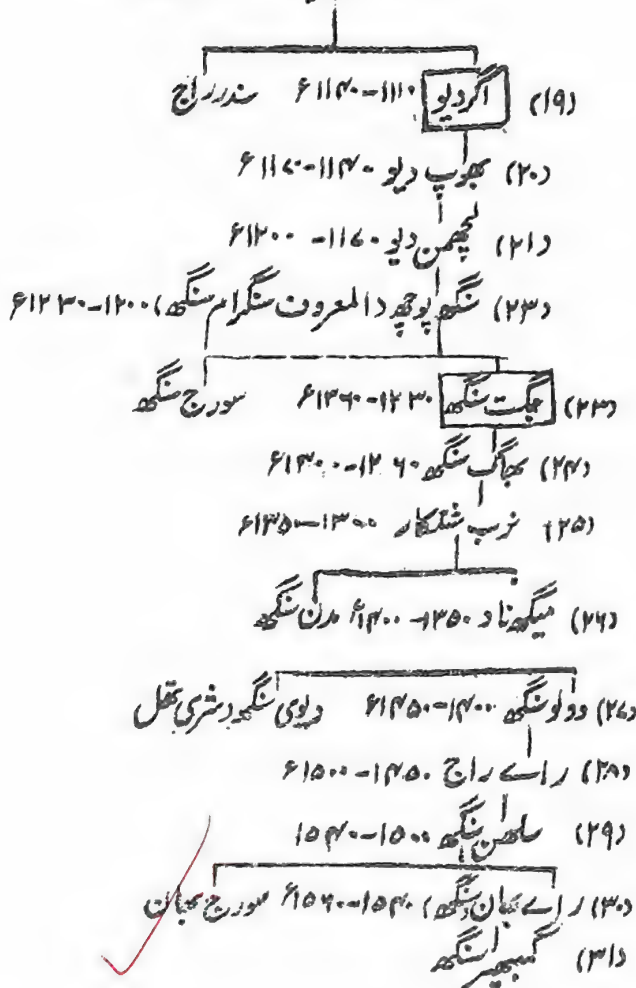 (۱۹) اگردیو ۱۱۱۰-۱۱۴۰ء سندر راج
(۲۰) بھوپ دیو ۱۱۴۰-۱۱۷۰ء
(۲۱) لچھمن دیو ۱۱۷۰-۱۲۰۰ء
(۲۳) سنگھ پوچھہ (المعروف سنگرام سنگھ) ۱۲۰۰-۱۲۳۰ء
(۲۳) جگت سنگھ ۱۲۳۰-۱۲۶۰ء سورج سنگھ
(۲۴) بھاگ سنگھ ۱۲۶۰-۱۳۰۰ء
(۲۵) نرب شنکار ۱۳۰۰-۱۳۵۰ء
(۲۶) میگھ ناد ۱۳۵۰-۱۴۰۰ء مدن سنگھ
(۲۷) دولو سنگھ ۱۴۰۰-۱۴۵۰ء دیوی سنگھ (شری
(۲۸) راے راج ۱۴۵۰-۱۵۰۰ء
(۲۹) سلھن سنگھ ۱۵۰۰-۱۵۴۰
(۳۰) راے بھان (سنگھ) ۱۵۴۰-۱۵۶۰ء سورج بھان
(۳۱) گمبھیر سنگھ